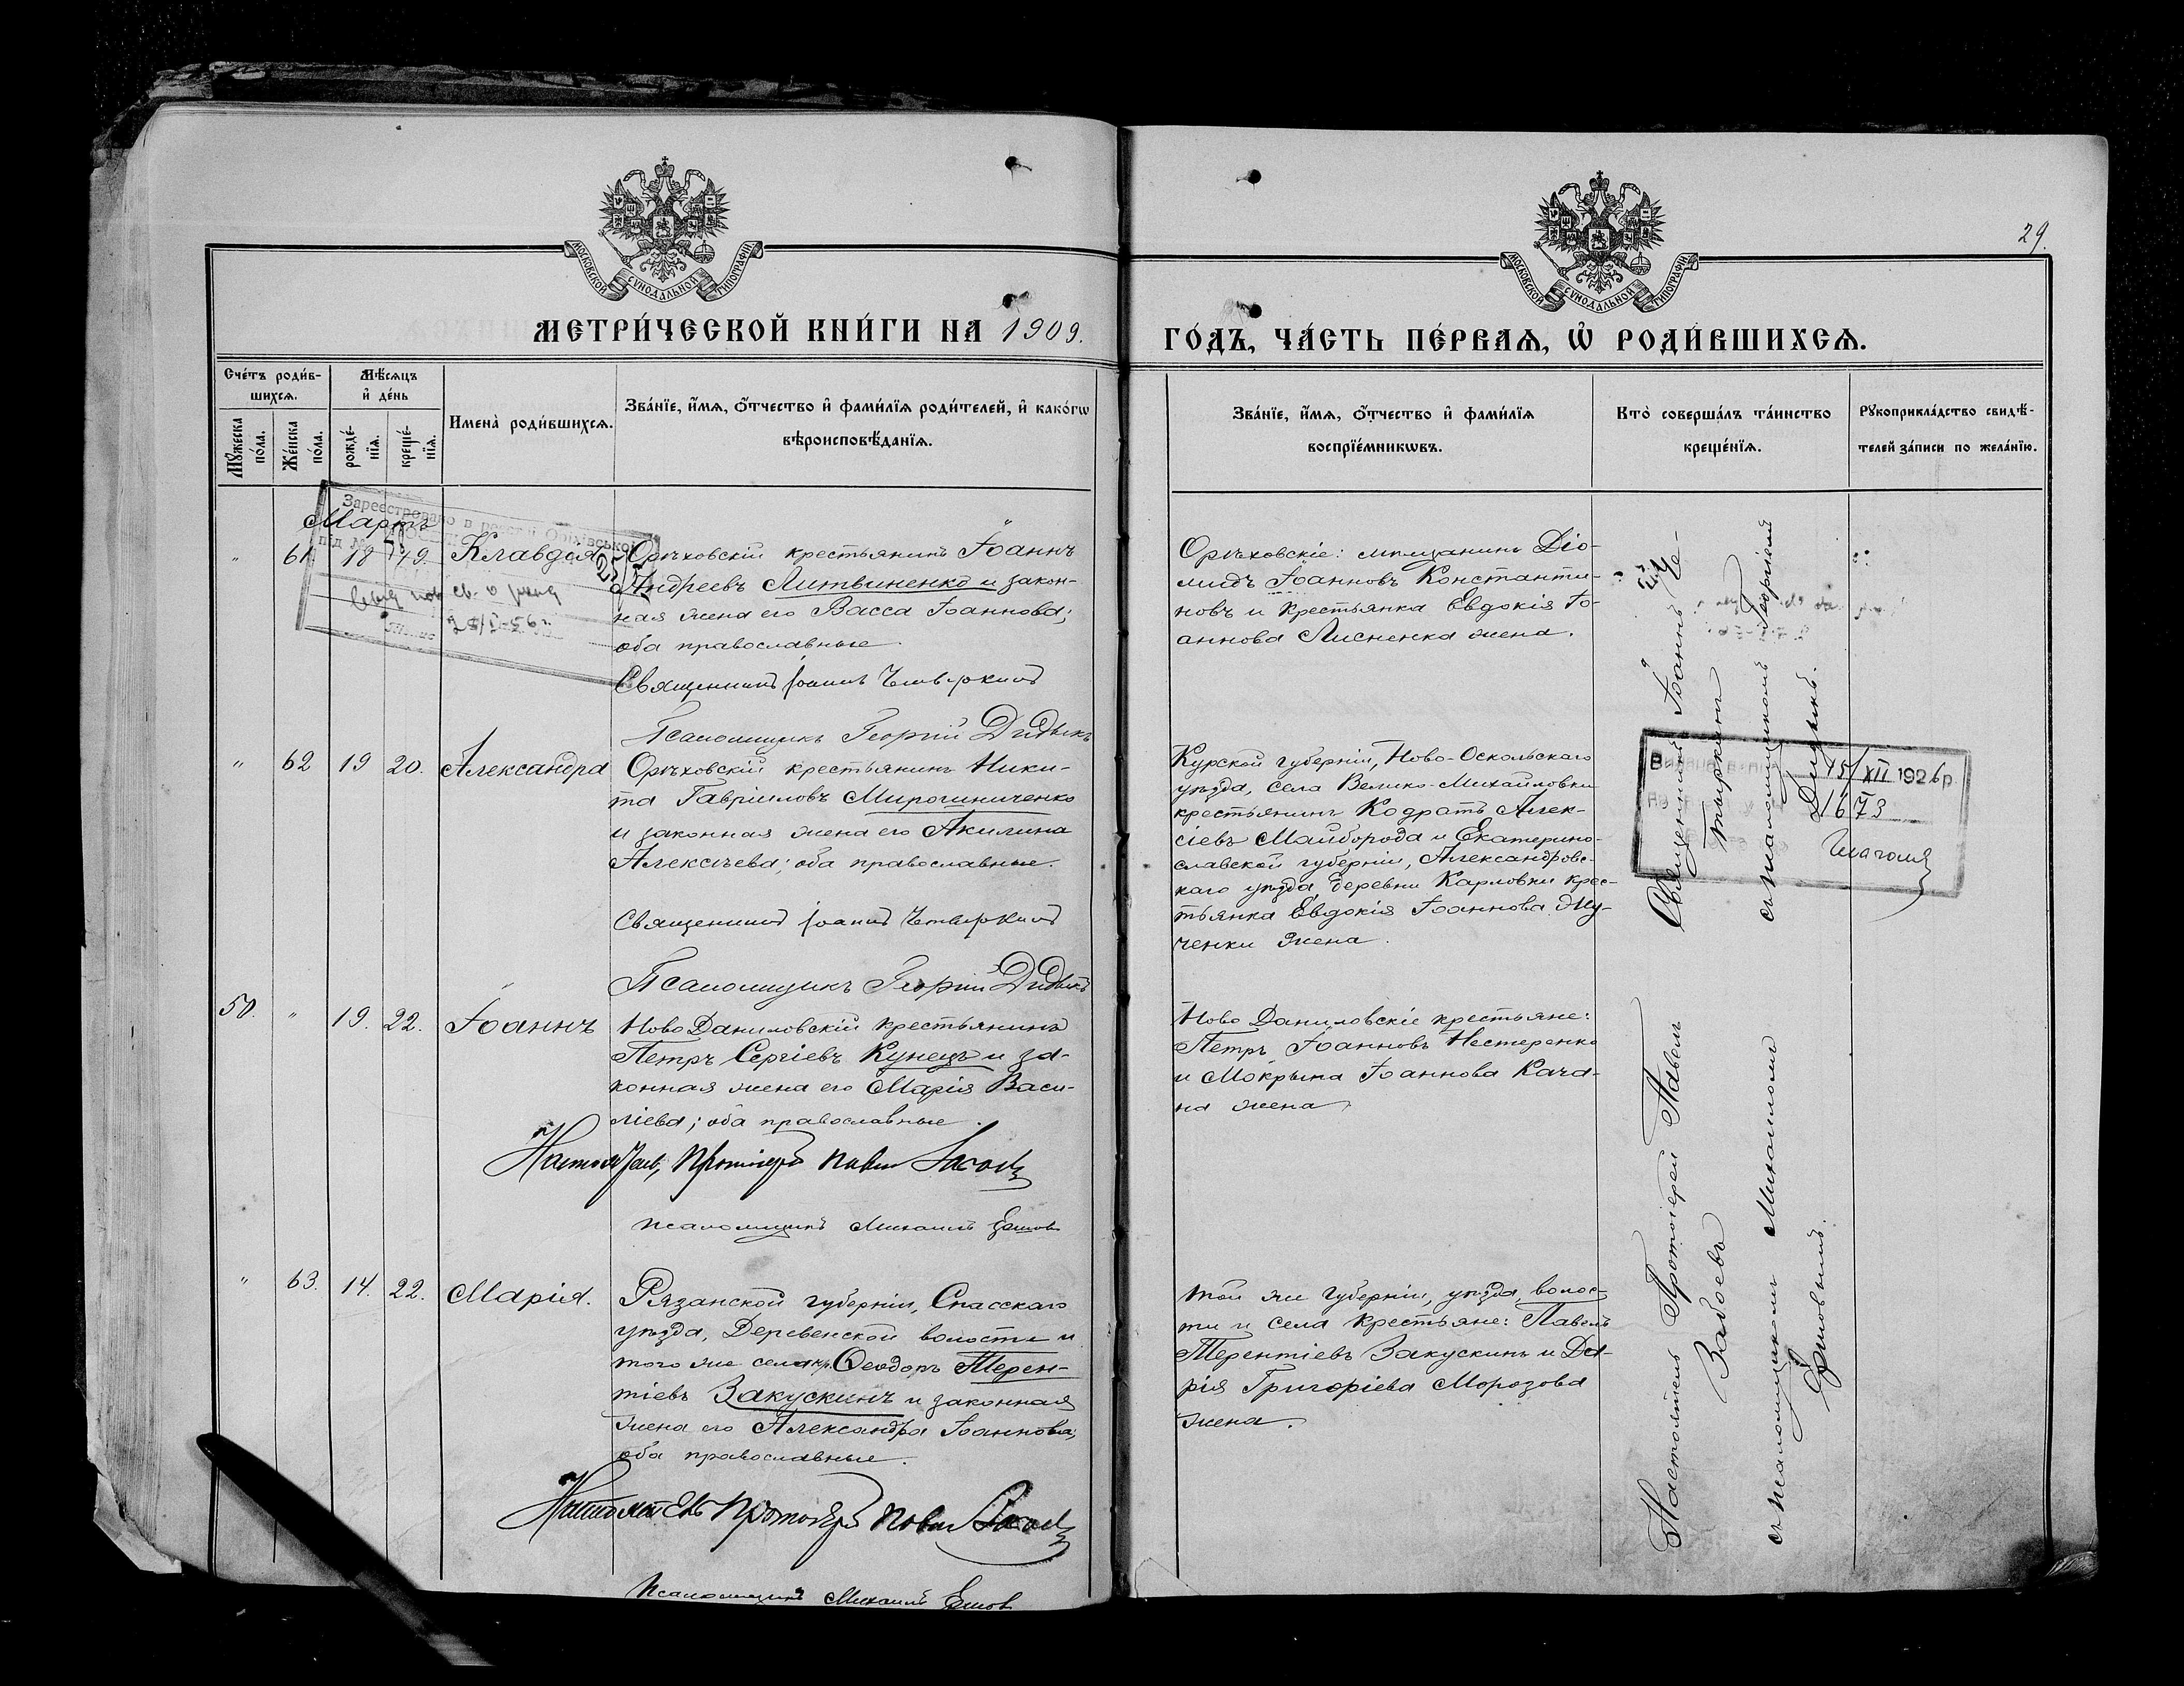 29.
МОСКОВСКОЙ СѴНОДАЛЬНОЙ ТИПОГРАФІИ
МОСКОВСКОЙ СѴНОДАЛЬНОЙ ТИПОГРАФІИ
МЕТРИ́ЧЕСКОЙ КНИ́ГИ НА 1909.
ГО́ДЪ, ЧА́СТЬ ПЕ́РВАѦ, Ѡ҆ РОДИ́ВШИХСѦ.
Сче́тъ роди́в-
шихсѧ.
Мѣ́сѧцъ
и҆ де́нь
Мꙋ́жеска
по́ла.
Же́нска
по́ла.
рожде́-
нїѧ.
креще́-
нїѧ.
Имена̀ роди́вшихсѧ.
Зва́нїе, и҆́мѧ, ѻ҆́тчество и҆ фами́лїѧ роди́телей, и҆ како́гѡ
вѣроисповѣ́данїѧ.
Зва́нїе, и҆́мѧ, ѻ҆́тчество и҆ фами́лїѧ
воспрїе́мникѡвъ.
Кто̀ соверша́лъ та́инство
креще́нїѧ.
Рꙋкоприкла́дство свидѣ́-
телей за́писи по жела́нїю.
Мартъ
" 61. 18 19. Клавдія
Орѣховскій крестьянинъ Іоаннъ
Андреевъ Литвиненко и закон-
ная жена его Васса Іоаннова;
оба православные
Священникъ Іоаннъ Четыркинъ
Псаломщикъ Георгій Дидыкъ
Орѣховскіе: мѣщанинъ Діо-
мидъ Іоанновъ Константи-
новъ и крестьянка Евдокія Іо-
аннова Лисненка жена.
Зареестровано в реєстрі Оріхівської
під №
" 62 19 20. Александра
Орѣховскій крестьянинъ Ники-
та Гавріиловъ Мирошниченко
и законная жена его Акилина
Алексѣева; оба православные.
Священникъ Іоаннъ Четыркинъ
Псаломщикъ Георгій Дидыкъ
Курской губерніи, Ново-Оскольскаго
уѣзда, села Велико-Михайловки
крестьянинъ Кодратъ Алек-
сіевъ Майборода и Екатерино-
славской губерніи, Александровс-
каго уѣзда, деревни Карловки крес-
тьянка Евдокія Іоаннова Му-
ченки жена.
Священникъ Іоаннъ Че-
тыркинъ
съ псаломщикомъ Георгіемъ
Дидыкъ.
15/XII 1926 р.
1673
50. " 19. 22. Іоаннъ
Ново Даниловскій крестьянинъ
Петръ Сергіевъ Кунецъ и за-
конная жена его Марія Васи-
ліева; оба православные.
Настоятель, Протоіерей Павелъ
Псаломщикъ Михаилъ Ершов
Ново Даниловскіе крестьяне:
Петръ Іоанновъ Нестеренко
и Мокрына Іоаннова Кача-
на жена
" 63. 14. 22. Марія.
Рязанской губерніи, Спасскаго
уѣзда, Деревенской волости и
того же села кр. Ѳеодоръ Терен-
тіевъ Закускинъ и законная
жена его Александра Іоаннова;
оба православные.
Настоятель Протоіерей Павелъ
Псаломщикъ Михаилъ Ершов
той же губерніи, уѣзда, волос-
ти и села крестьяне: Павелъ
Терентіевъ Закускинъ и Да-
рія Григоріева Морозова
жена.
Настоятель Протоіерей Павелъ
съ псаломщикомъ Михаиломъ
Ершовымъ.